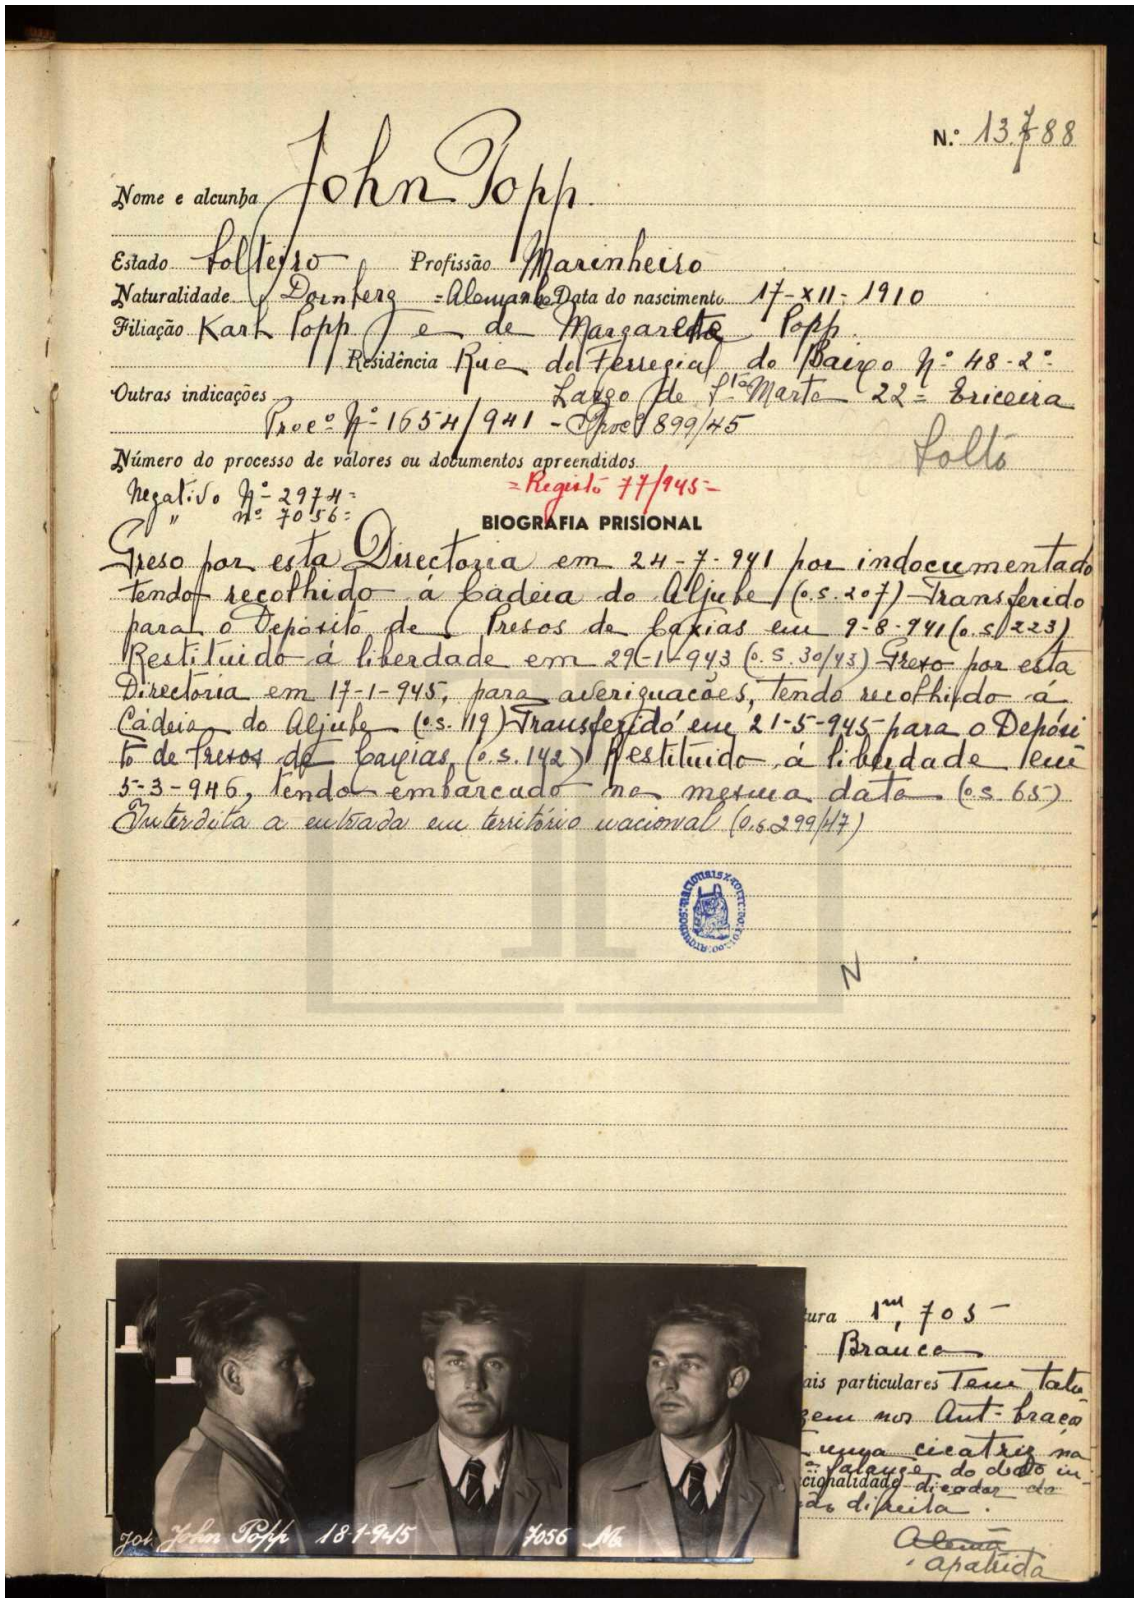 N.º 13.788
Nome e alcunha John Popp.
Estado Solteiro Profissão Marinheiro
Naturalidade Dornberg = Alemanha Data do nascimento 17-XII-1910
Filiação Karl Popp e de Margarette Popp.
Residência Rua do Ferregial do Baixo Nº 48-2º
Outras indicações Largo de Stª Marta 22 = Ericeira
Procº Nº 1654/941 - Procº 899/45
Solto
Número do processo de valores ou documentos apreendidos
Negativo Nº 2974= = Registo 77/945=
" nº 7056=
BIOGRAFIA PRISIONAL
Preso por esta Directoria em 24-7-941 por indocumentado
tendo recolhido á Cadeia do Aljube (o.s. 207) Transferido
para o Depósito de Presos de Caxias em 9-8-941 (o.s. 223)
Restituido á liberdade em 29-1-943 (o.s. 30/43) Preso por esta
Directoria em 17-1-945, para averiguacões, tendo recolhido á
Cadeia do Aljube (o.s. 119) Transferido em 21-5-945 para o Depósi
to de Presos de Caxias, (o.s. 142) Restituido á liberdade em
5-3-946, tendo embarcado na mesma data (o.s. 65)
Interdita a entrada em território nacional (o.s. 299/47)
N
tura 1m, 705
Branca
ais particulares Tem tatu
gem nos Ant-braço
uma cicatriz na
falange do dedo in-
cionalidade dicador da
ão direita.
Alemã
apátrida
John Popp 18-1-945 7056